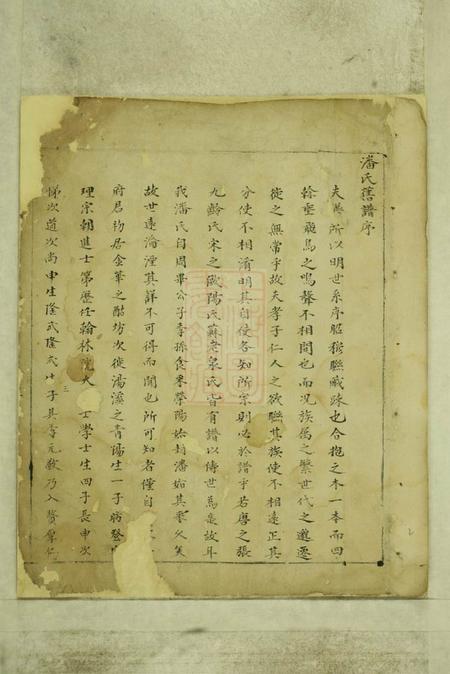 潘氏舊譜序
夫譜所以明世系序昭穆聯戚疎也合抱之木一本而四
幹垂飛鳥之鳴聲不相聞也而況族屬之繁世代之遷
徙之無常乎故夫孝子仁人之欲聯其族使不相遠正其
分使不相淆明其自使各知所宗則必於譜乎若唐之張
九齡氏宋之歐陽氏蘇老泉氏皆有譜以傳世焉故耳
我潘氏自周畢公子季孫食采滎陽始封潘姑其來久矣
故世遠淪湮其詳不可得而聞也所可知者僅自
府君約居金華之酷坊次徙湯溪之青陽生一子昉登
理宗朝進士第歷任翰林院大 士學士生四子長申次
悌次道次尚申生隆武隆武 子具季元敘乃入贅